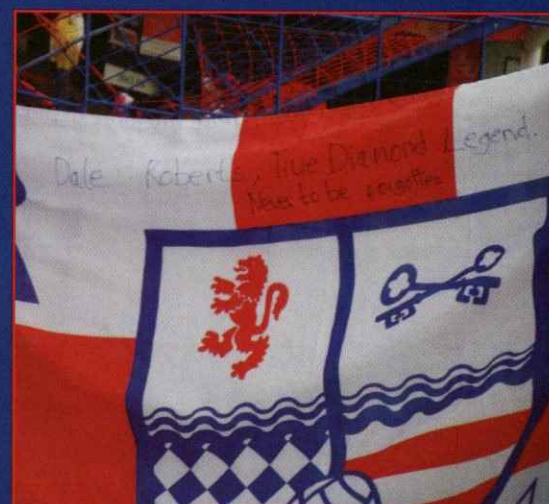 Dale Roberts, True Diamond Legend.
Never to be forgotten